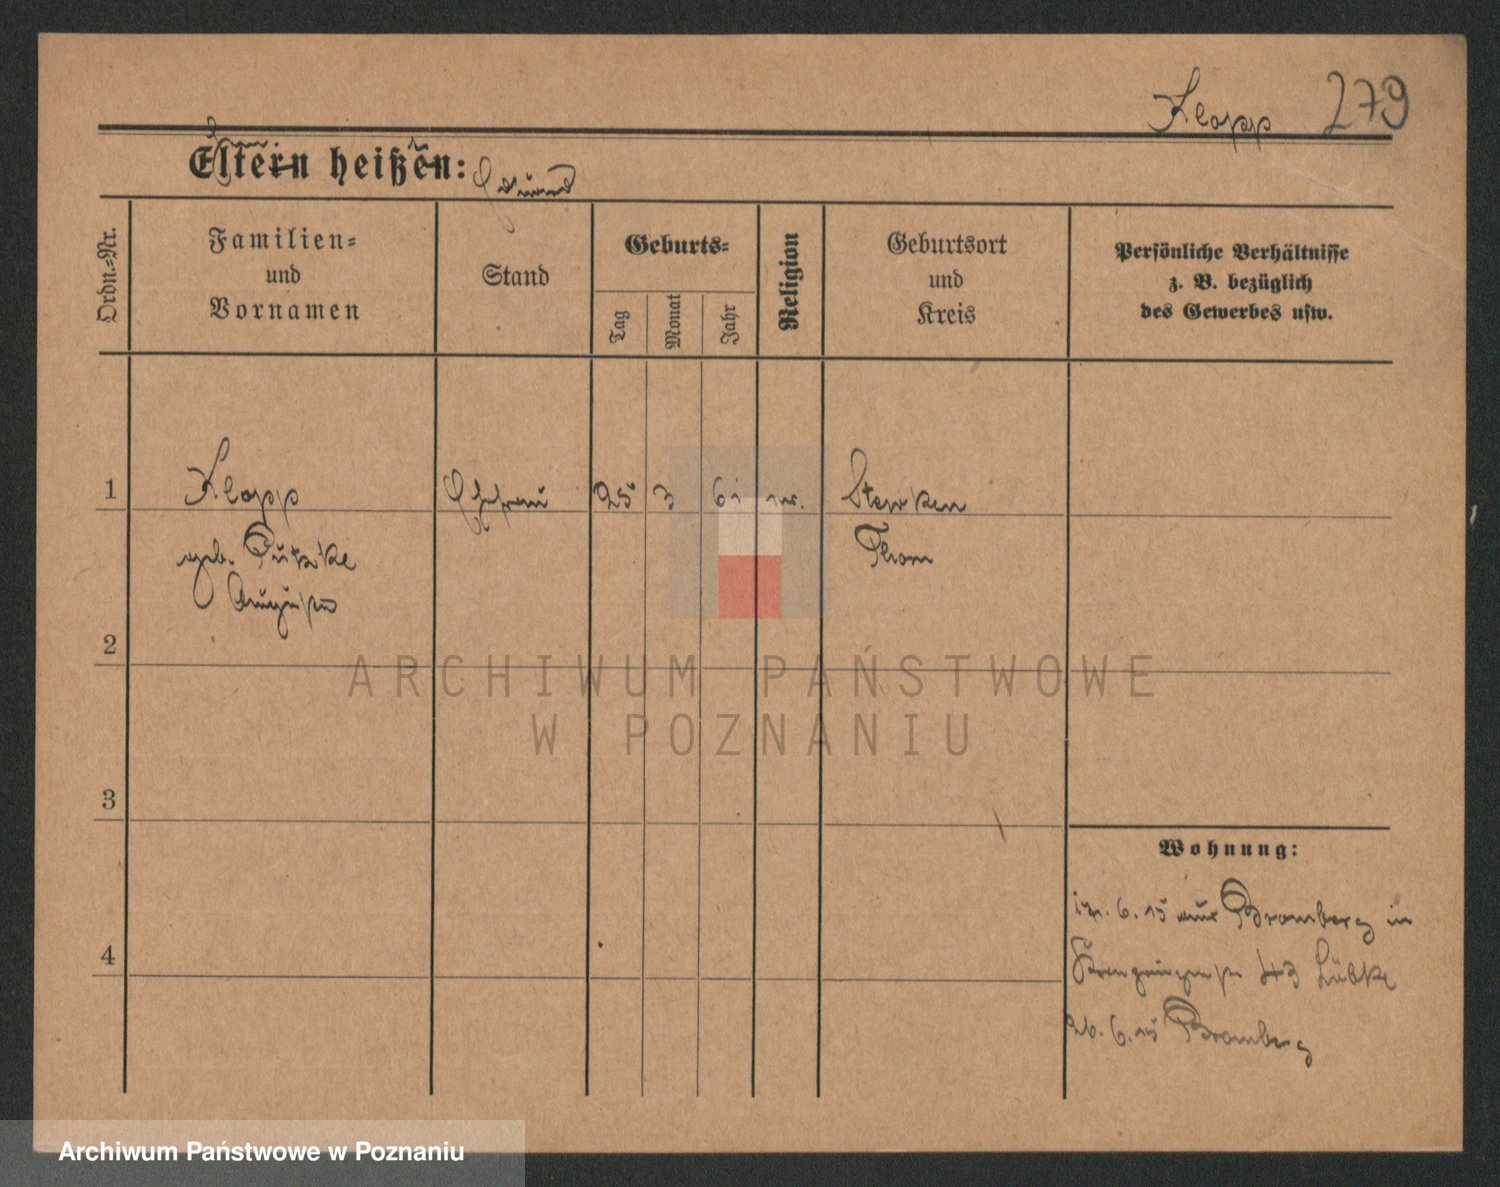 Klopp 279
Eltern heißen:
Ordn.-Nr.
Familien-
und
Vornamen
Stand
Geburts-
Tag
Monat
Jahr
Religion
Geburtsort
und
Kreis
Persönliche Verhältnisse
z. B. bezüglich
des Gewerbes usw.
1
Klopp
Ehefrau
25
3
61
geb.
Auguste
Thorn
2
ARCHIWUM PAŃSTWOWE
W POZNANIU
3
Wohnung:
6. 15 aus Bromberg in
43 Lübke
4
26. 6. 15 Bromberg
Archiwum Państwowe w Poznaniu